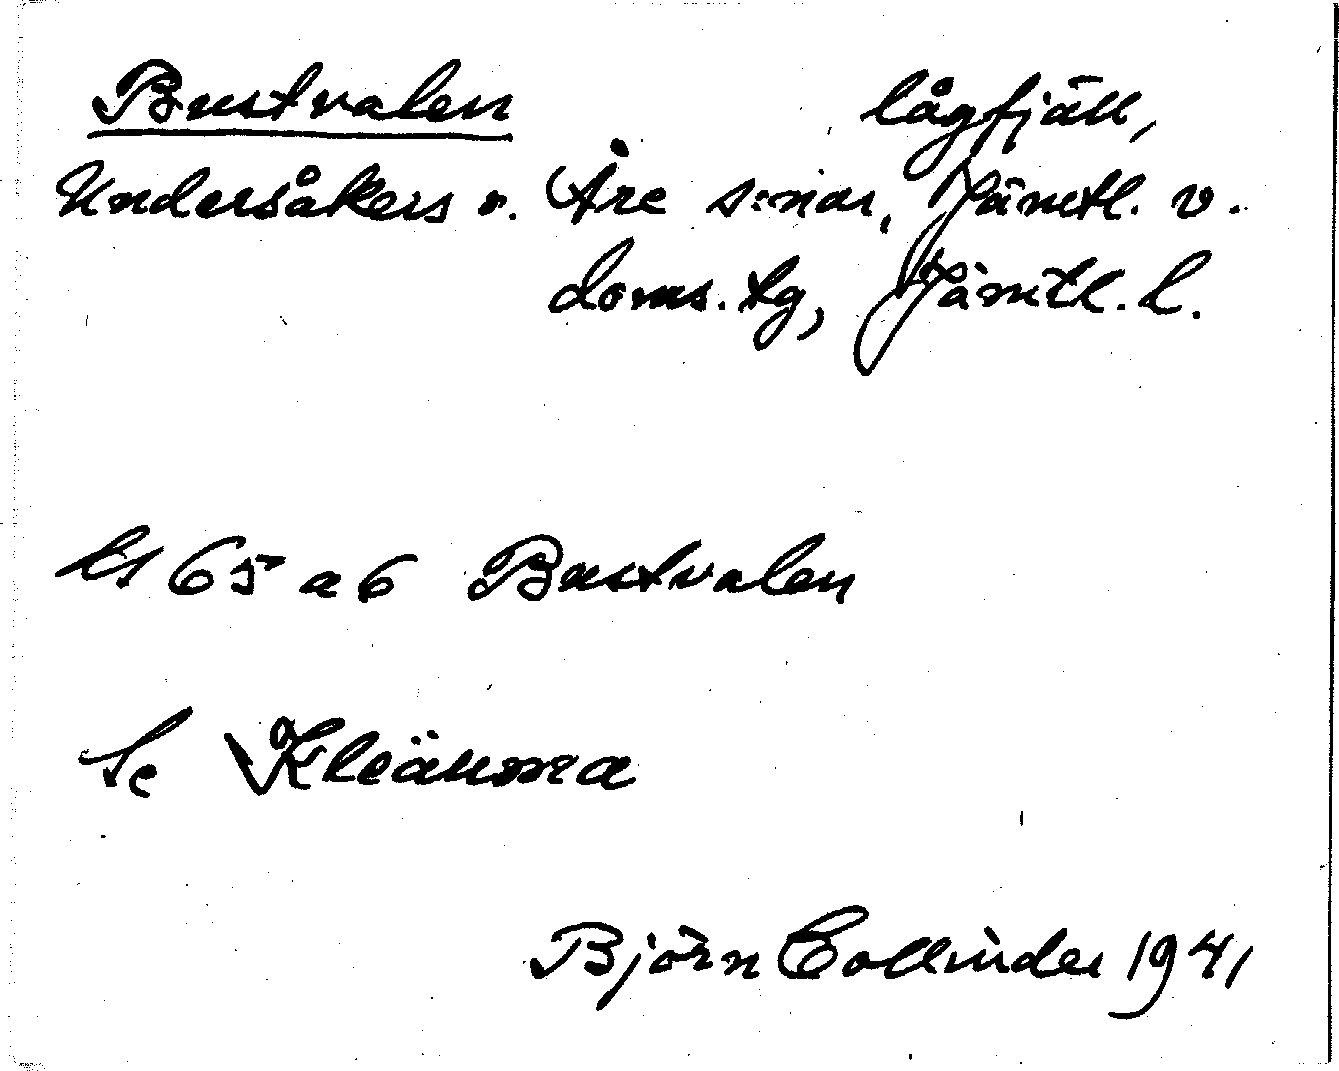 Bustvalen lågfjäll,
Undersåkers o. Åre s:nar, Jämtl. v.
doms. tg, Jämtl. l.
bl 65 a 6 Bustvalen
Se Kleänma
Björn Collinder 1941